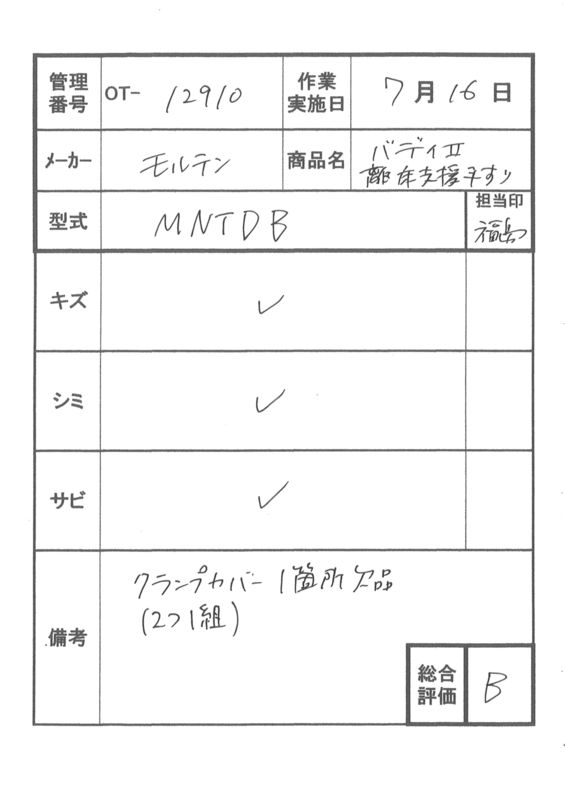 管理番号 OT- 12910 作業実施日 7月16日
メーカー モルテン 商品名 バディⅡ
離床支援手すり
型式 MNTDB 担当印 福島
キズ ✓
シミ ✓
サビ ✓
備考 クランプカバー 1箇所欠品
(2つ1組)
総合評価 B